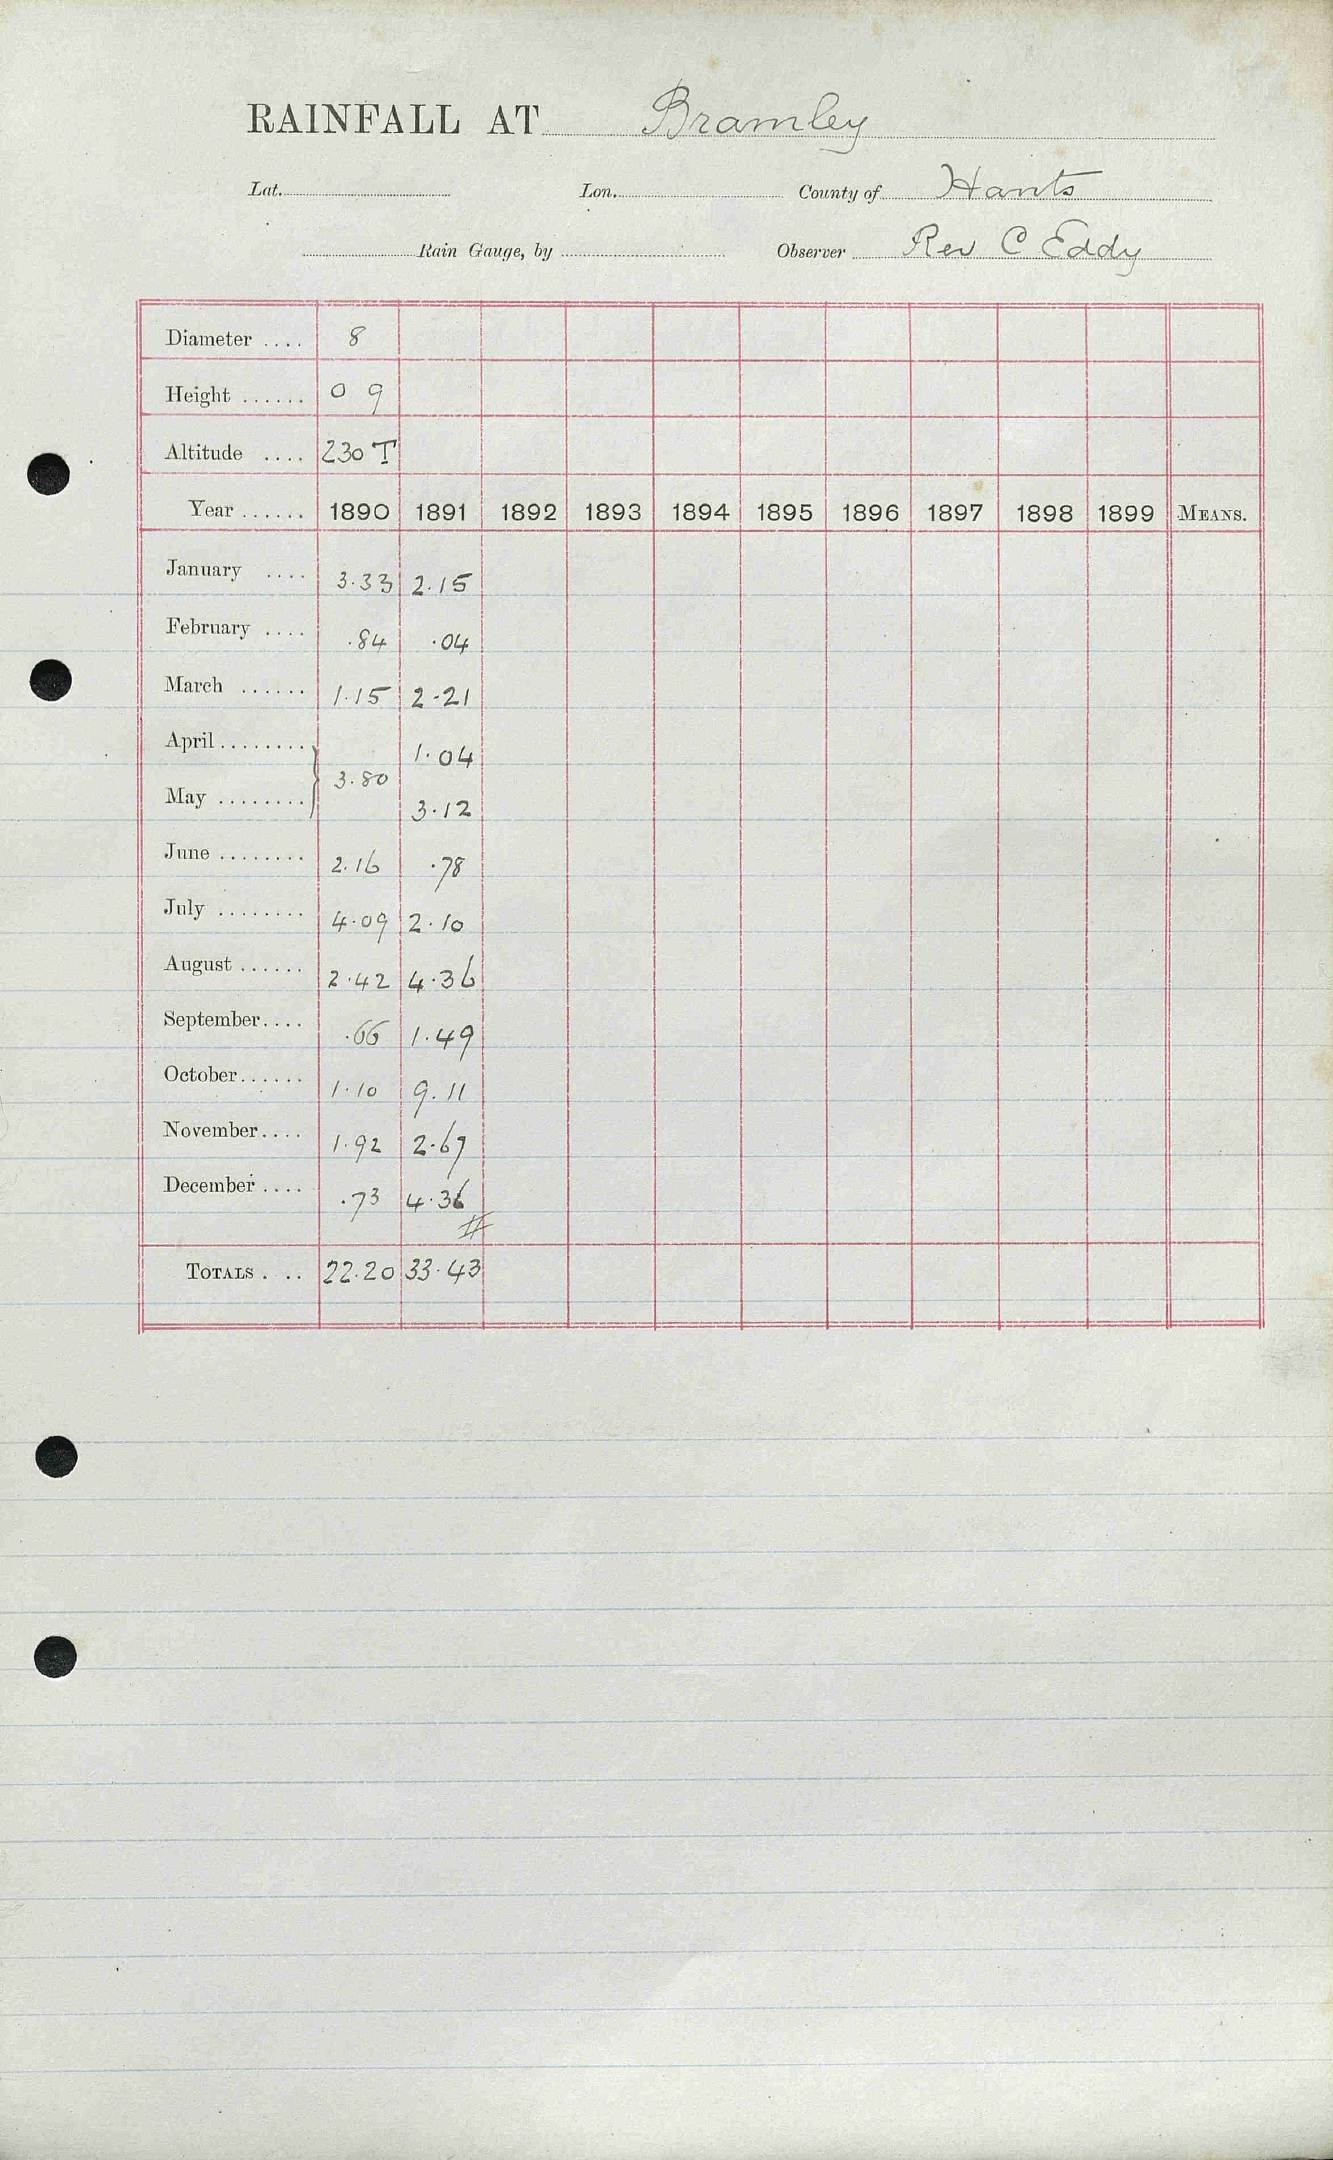 RAINFALL AT Bramley
Lat. Lon. County of Hants
Rain Gauge, by Observer Rev C Eddy
Diameter .... 8
Height ...... 0 9
Altitude .... 230 T
Year ...... 1890 1891 1892 1893 1894 1895 1896 1897 1898 1899 MEANS.
January .... 3.33 2.15
February .... .84 .04
March ...... 1.15 2.21
April ........ 1.04
} 3.80
May ........ 3.12
June ........ 2.16 .78
July ........ 4.09 2.10
August ...... 2.42 4.36
September .... .66 1.49
October ...... 1.10 9.11
November .... 1.92 2.67
December .... .73 4.36
#
TOTALS . .. 22.20 33.43